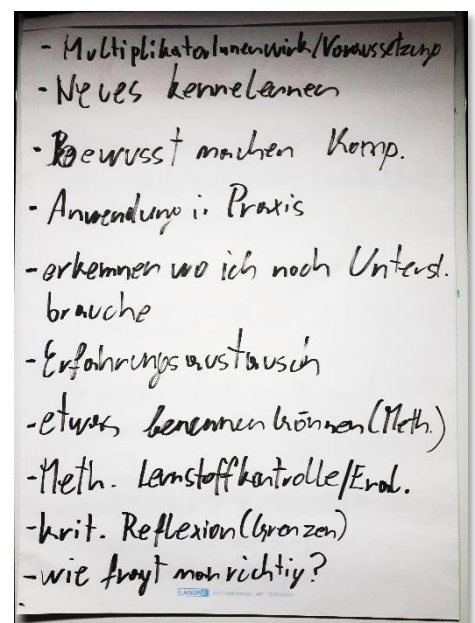 - MultiplikatorInnenwirk/Voraussetzung
- Neues kennelernen
- Bewusst machen Komp.
- Anwendung i. Praxis
- erkennen wo ich noch Unterst.
brauche
- Erfahrungsaustausch
- etwas benennen können (Meth.)
- Meth. Lernstoffkontrolle/Eval.
- krit. Reflexion (Grenzen)
- wie fragt man richtig?